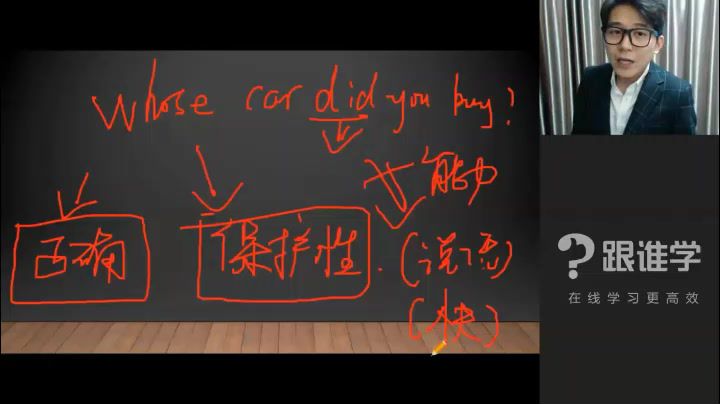 Whose car did you buy?
能力
正确 保护性 (说话)
(快)
跟谁学
在线学习更高效